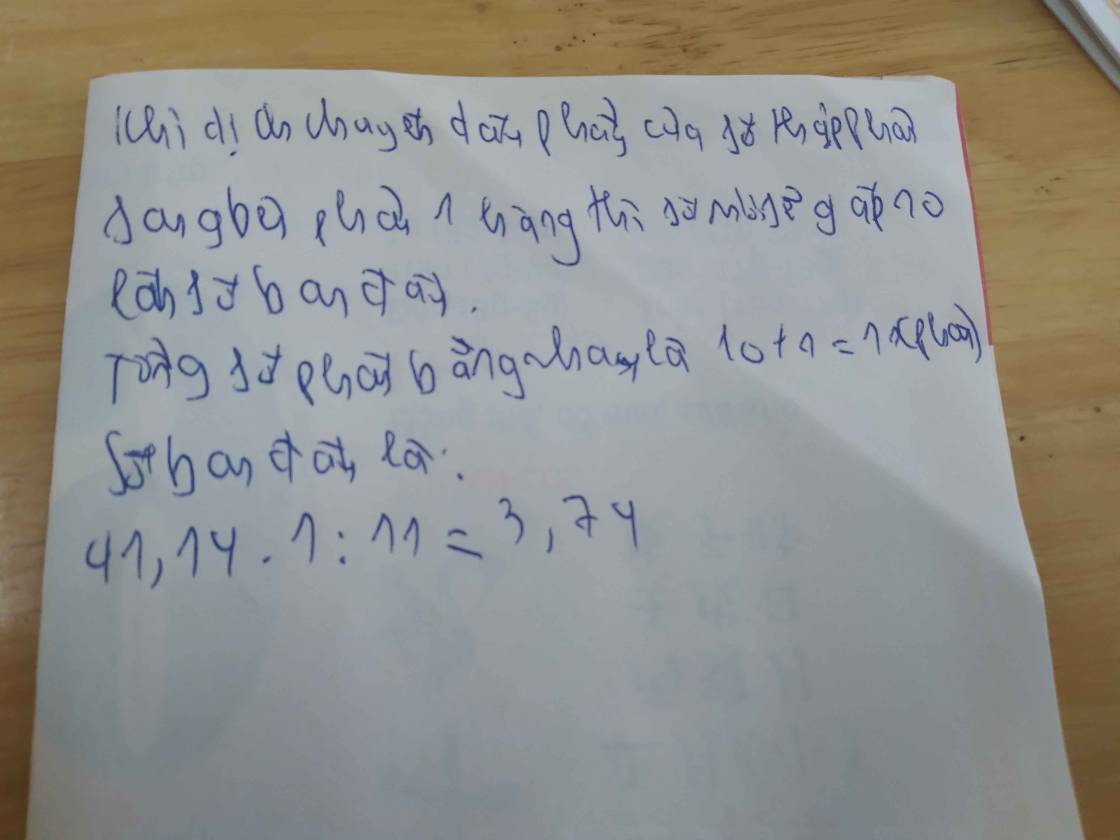 Khi dịch chuyển dấu phẩy của số thập phân
sang bên phải 1 hàng thì số mới sẽ gấp 10
lần số ban đầu.
Tổng số phần bằng nhau là 10 + 1 = 11 (phần)
Số ban đầu là:
41,14 . 1 : 11 = 3,74